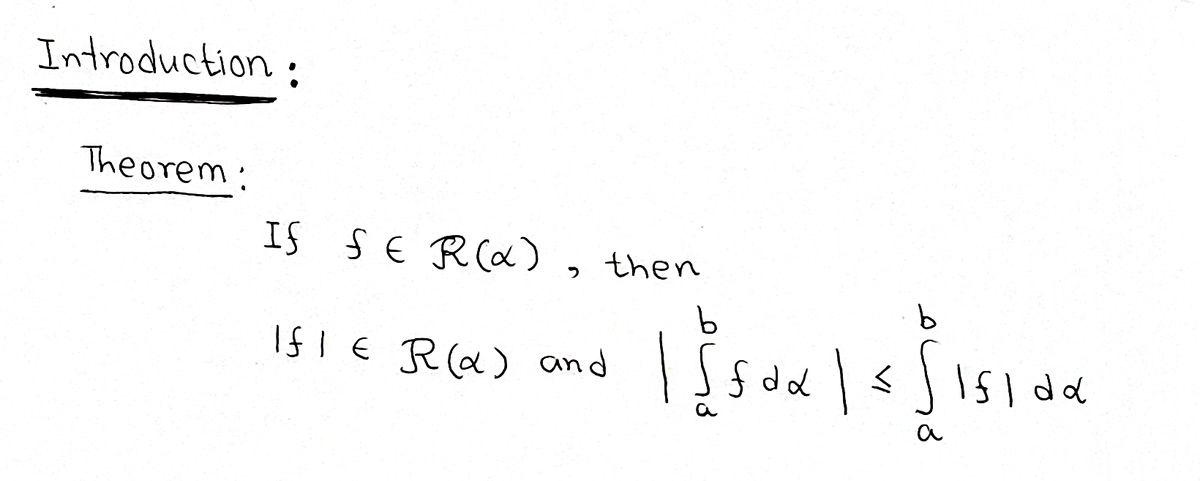 Introduction :
Theorem :
If f ∈ ℛ(α) , then
|f| ∈ ℛ(α) and | ∫ₐᵇ f dα | ≤ ∫ₐᵇ |f| dα